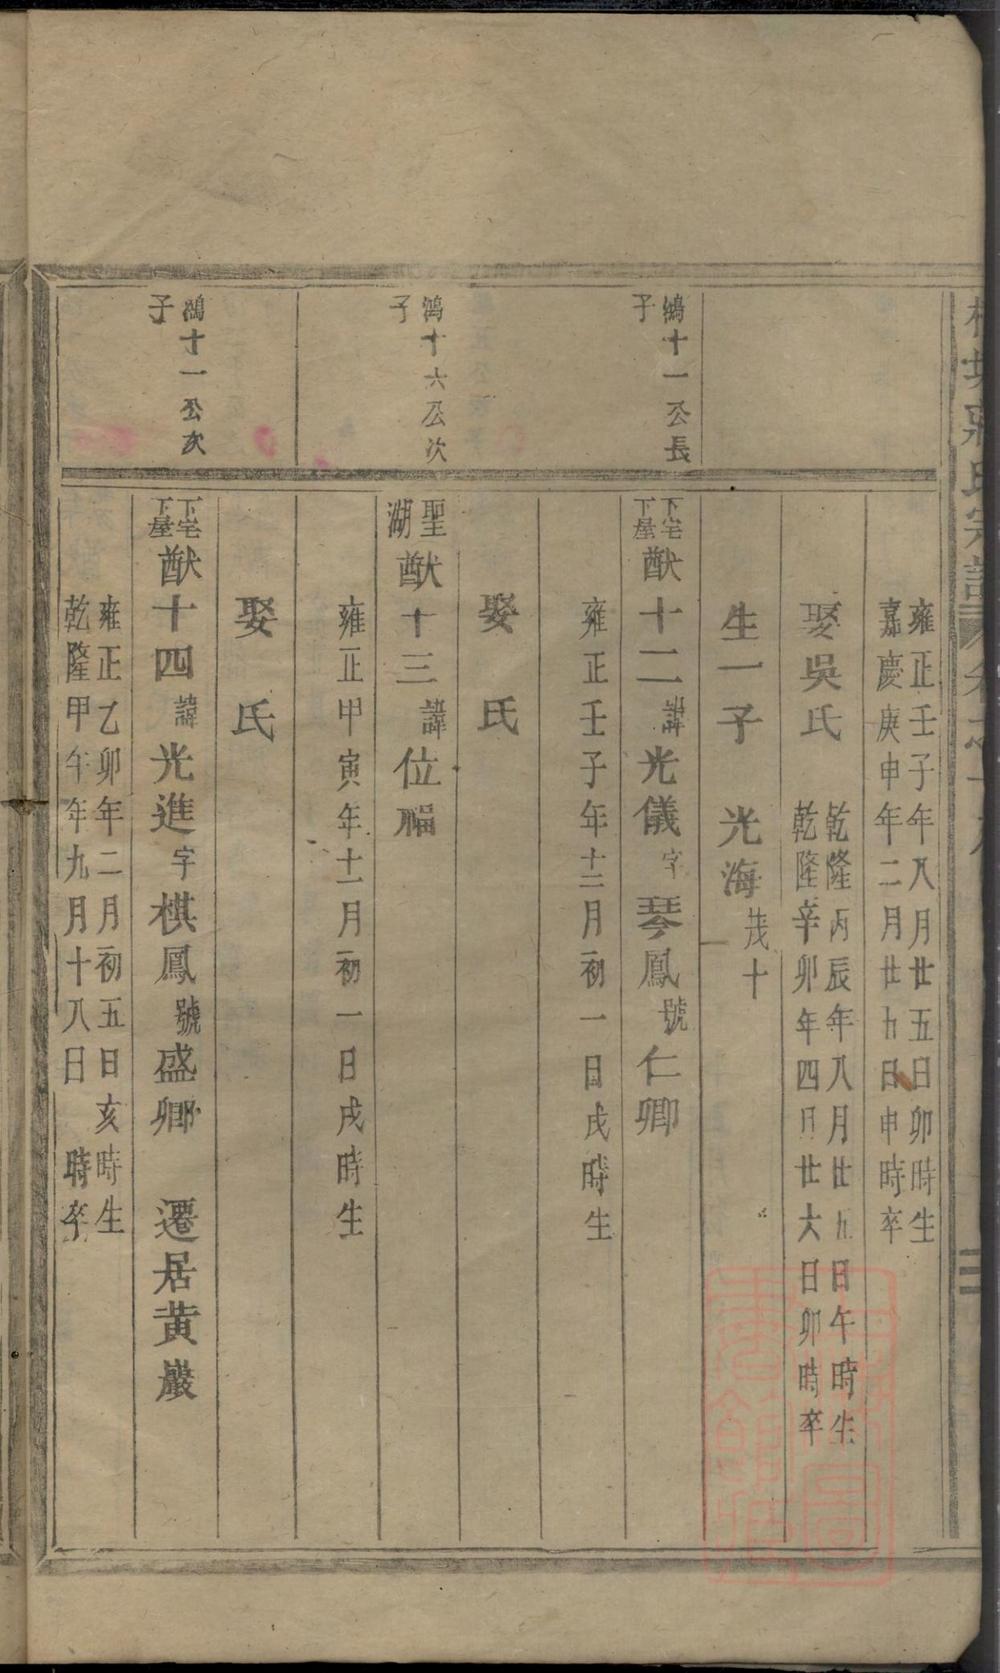 氏宗譜
雍正壬子年八月廿五日卯時生
嘉慶庚申年二月廿九日申時卒
娶吳氏
乾隆丙辰年八月廿九日午時生
乾隆辛卯年四月廿六日卯時卒
生一子 光海 茂十
鴻十一公長子
下宅下屋 猷十二 諱 光儀 字 琴鳳 號 仁卿
雍正壬子年十二月初一日戌時生
娶 氏
鴻十六公次子
聖湖 猷十三 諱 位福
雍正甲寅年十一月初一日戌時生
娶 氏
鴻十一公次子
下宅下屋 猷十四 諱 光進 字 棋鳳 號 盛卿 遷居黃巖
雍正乙卯年二月初五日亥時生
乾隆甲午年九月十八日 時卒